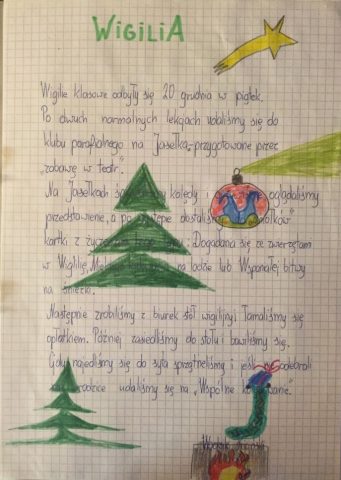 WIGILIA
Wigilie klasowe odbyły się 20 grudnia w piątek.
Po dwuch normalnych lekcjach udaliśmy się do
klubu parafialnego na Jasełka, przygotowane przez
„zabawę w teatr".
Na Jasełkach kolędy i oglądaliśmy
przedstawienie, a po występie dostaliśmy
kartki z życzeniami tego typu: Dogadania się ze zwierzętami
w Wigilię, na lodzie lub Wspaniałej bitwy
na śnieżki.
Następnie zrobiliśmy z biurek stół wigilijny i łamaliśmy się
opłatkiem. Później zasiedliśmy do stołu i bawiliśmy się.
Gdy najedliśmy się do syta sprzątneliśmy i jeśli odebrali
rodzice udaliśmy się na „Wspólne